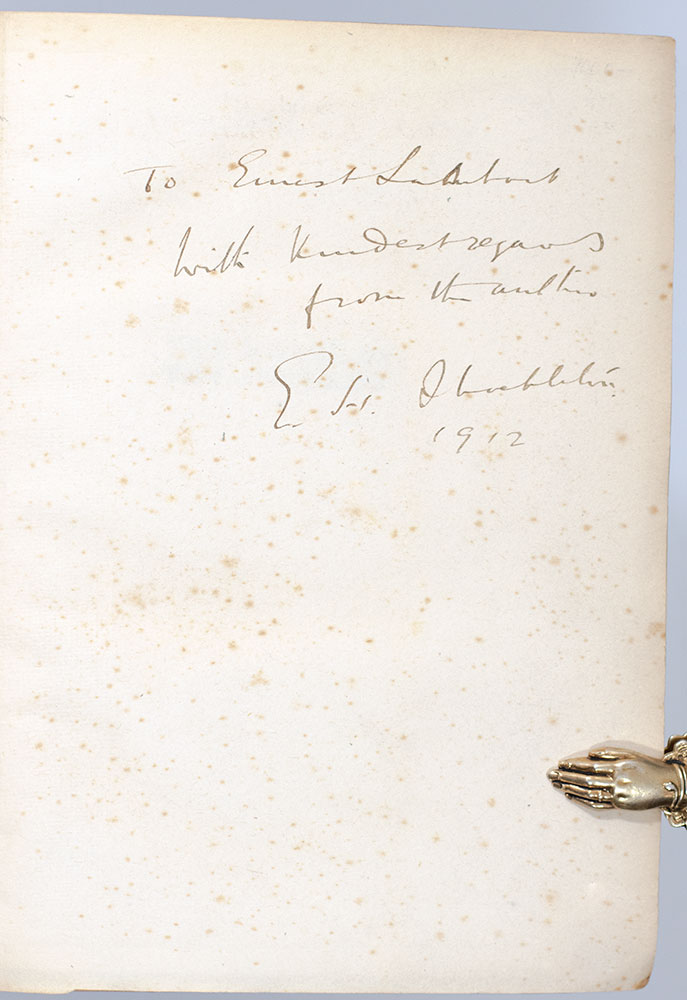 To Ernest
With kindest regards
from the author
E. H. Shackleton.
1912